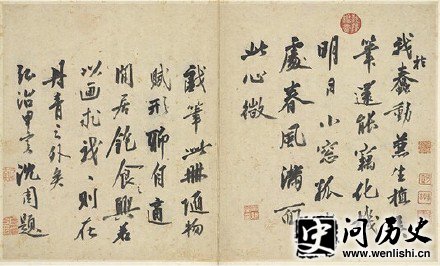 我於蠢動兼生植
筆還能竊化機
明日小窗孤
處春風滿面
此心微
戲筆此冊隨物
賦形聊自適
閒居飽食興若
以画求我〻則在
丹青之外矣
弘治甲寅沈周題
问历史
www.wenlishi.cn